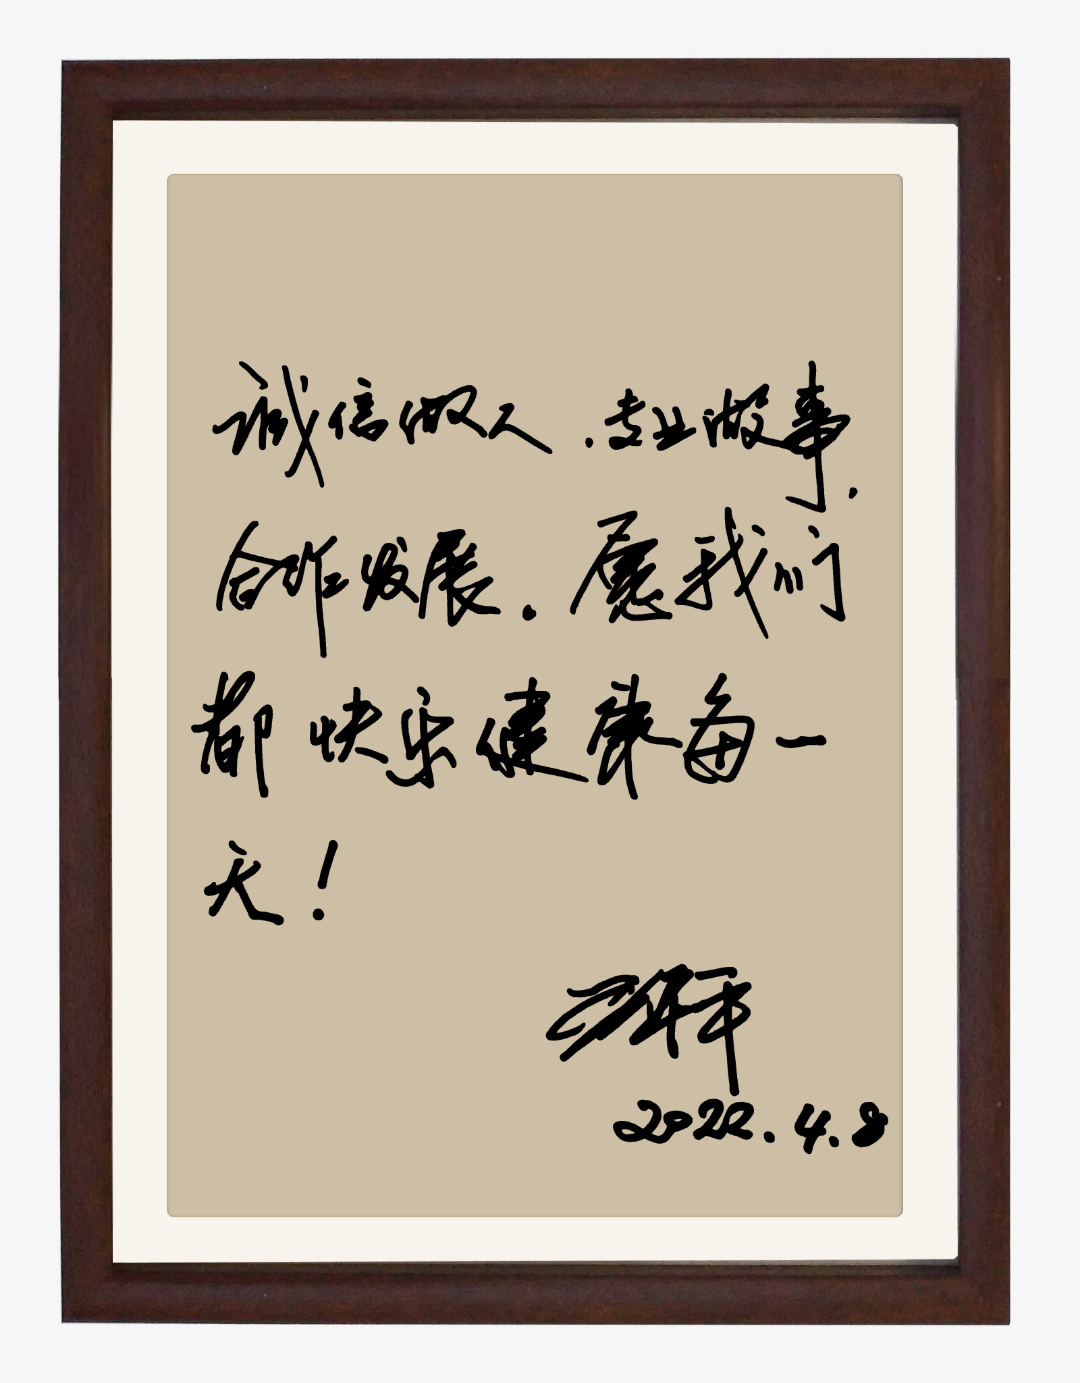 诚信做人、专业做事.
合作发展.愿我们
都快乐健康每一
天!
2022.4.8